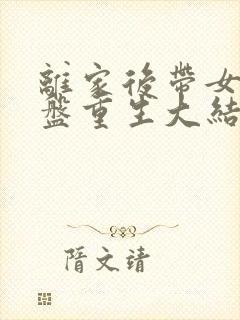 離家後帶女
盤重生大結
隋文靖